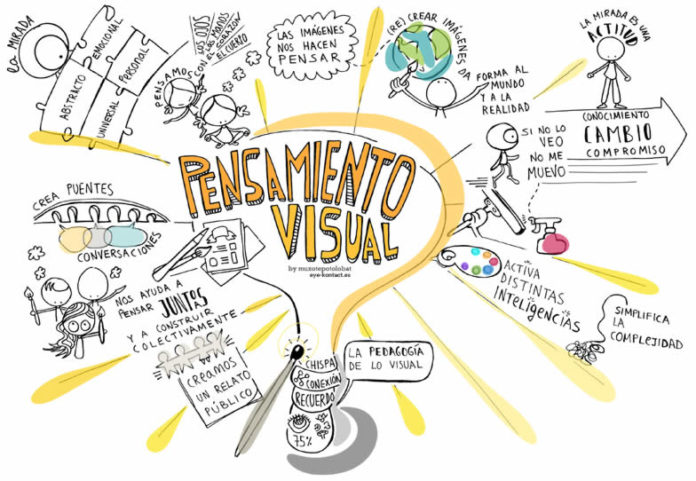 LA MIRADA
EMOCIONAL
PERSONAL
ABSTRACTO
UNIVERSAL
PENSAMOS
CON LOS OJOS
CON LAS MANOS
CON EL CORAZÓN
EL CUERPO
LAS IMÁGENES
NOS HACEN
PENSAR
(RE) CREAR IMÁGENES DA
FORMA AL
MUNDO
Y A LA
REALIDAD
LA MIRADA ES UNA
ACTITUD
CONOCIMIENTO
CAMBIO
COMPROMISO
SI NO LO
VEO
NO ME
MUEVO
PENSAMIENTO
VISUAL
by muxotepotolobat
eye-kontact.eu
CREA PUENTES
CONVERSACIONES
NOS AYUDA A
PENSAR JUNTAS
Y A CONSTRUIR
COLECTIVAMENTE
CREAMOS
UN RELATO
PÚBLICO
ACTIVA
DISTINTAS
INTELIGENCIAS
SIMPLIFICA
LA
COMPLEJIDAD
CHISPA
CONEXIÓN
RECUERDO
75%
LA PEDAGOGÍA
DE LO VISUAL